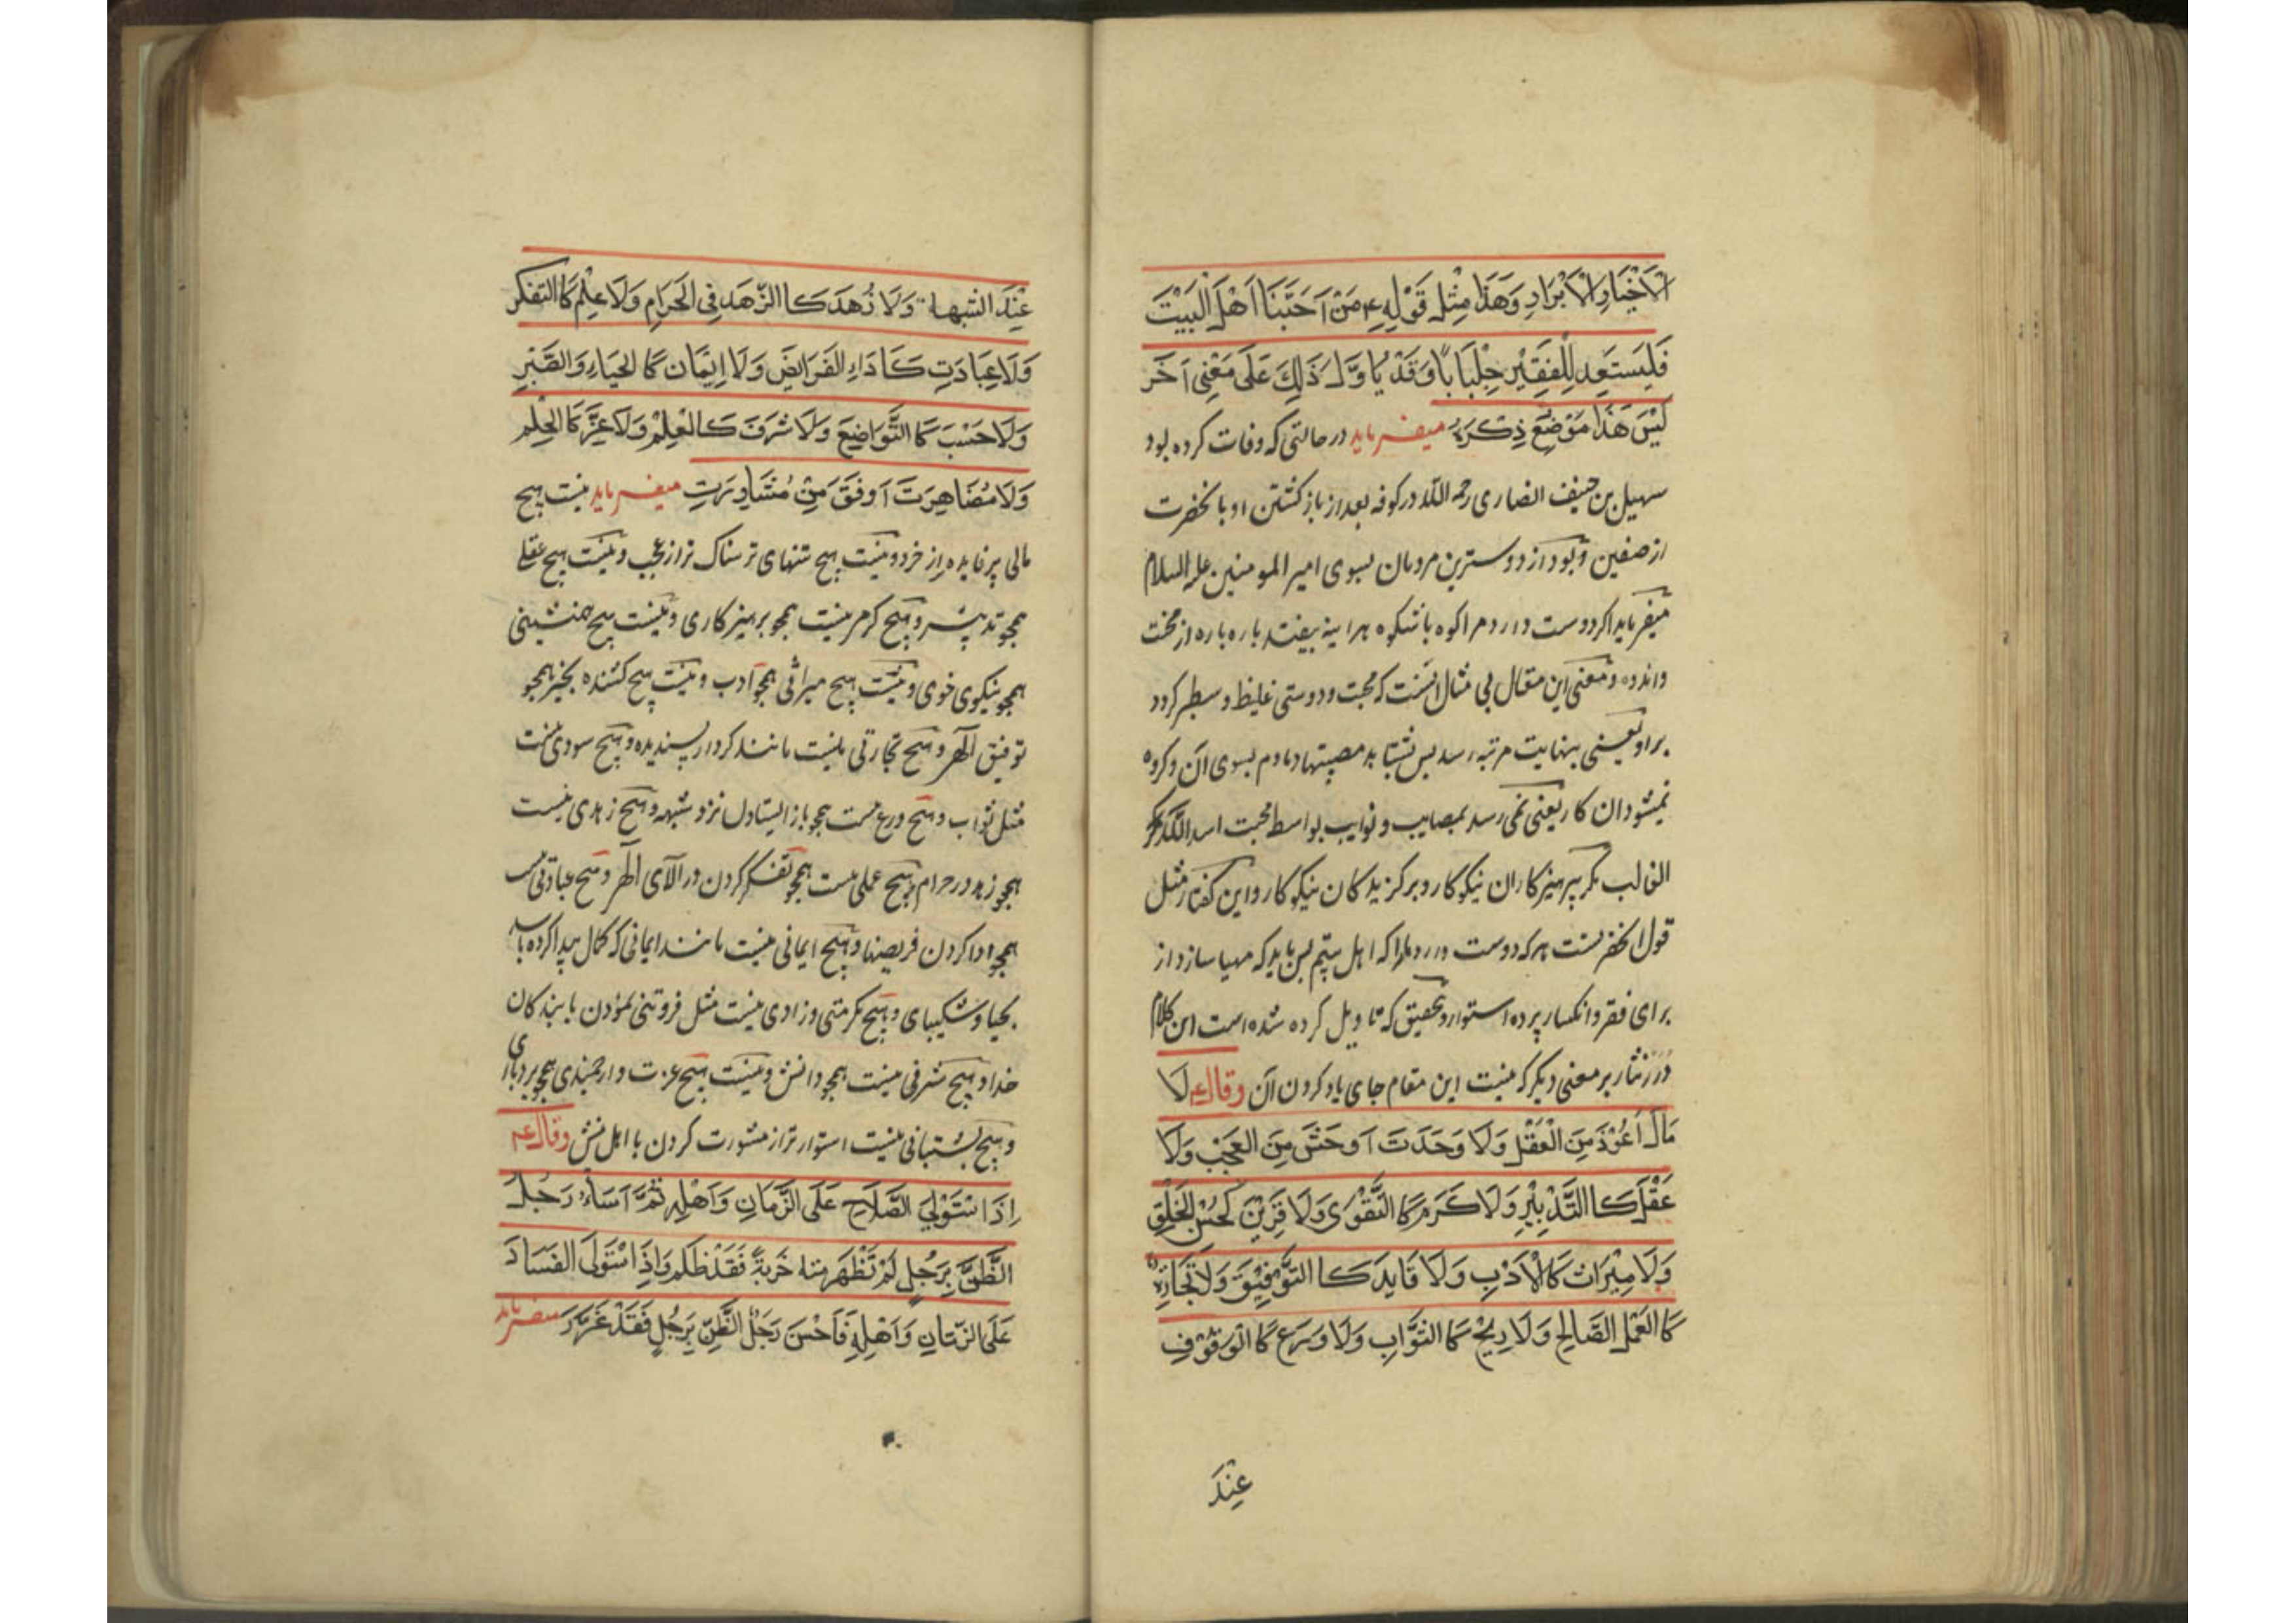 الْاَخْيَارِ الْاَبْرَارِ وَهَذَا مِثْل قَوْلِهِ ع مَنْ اَحَبَّنَا اَهْلَ الْبَيْتَ
فَلْيَسْتَعِد لِلْفَقِيْرِ جِلْبَابًا وَقَدْ يُاَوَّلـ ذَلِكَ عَلَى مَعْنِى آخَر
لَيْسَ هَذَا مَوْضَعَ ذِكْرَهُ ميفرمايد در حالتى كه وفات كرده بود
سهيل بن حنيف انصارى رحمه اللّه در كوفه بعد از باز كشتن او با نحضرت
از صفين و بود از دوسترين مردمان بسوى امير المومنين عليه السلام
ميفرمايد اكر دوست دارد مرا كوه با شكوه هراينه بيفتد باره باره از محنت
واندوه و معنى اين مقال بى مثال انست كه محبت و دوستى غليظ و سطبر كردد
براو يعنى بنهايت مرتبه رسد بس بشتابد مصيبتها دمادم بسوى آن وكروه
نميشود ان كار يعنى نمى رسد بمصايب و نوايب بواسط محبت اسد اللّه
الغالب مكر پرهيزكاران نيكوكار و بركزيدكان نيكوكار و اين كفتار مثل
قول انحضرتست هركه دوست دارد مارا كه اهل بيتيم بس بايد كه مهيا سازد از
براى فقر و انكسار پرده استوار و تحقيق كه تاويل كرده شده است اين كلام
درر نثار بر معنى ديكر كه نيست اين مقام جاى ياد كردن آن وقال ع لَا
مَالَ اَعُوْذَ مِنَ الْعَقْلِ وَلَا وَحَدَتَ اَوحَشَ مِنَ العَجْبَ وَلَا
عَقْلَ كَاالتَّدْبِيْرِ وَلَا كَرَم كَا التَّقْوَى وَلَا قَرِيْنَ كَحُسْنِ الْخَلْقِ
وَلَا مِيْرَاثَ كَالْاَدَبِ وَلَا قَايِدَ كَا التَّوْفِيْقَ وَلَا تِجَارَةً
كَا العَمَل الصَّالِحِ وَلَا رِيْحَ كَا الثَّوَابِ وَلَا وَرَع كَا الْوَقُوْفِ
عِنْدَ
عِنْدَ الشبهاة وَلَا زُهدَ كَا الزّهَدِ فِى الحَرَامِ وَلَا عِلْم كَا التفكر
وَلَا عِبَادَتِ كَاَدَاءِ الفَرَائِضَ وَلَا اِيْمَان كَا لحَيَاءِ وَالصَّبْرِ
وَلَا حَسْبَ كَا التَّوَاضِعَ وَلَا شَرَفَ كَالعِلْم وَلَا عِزَّ كَا الحِلْم
وَلَا مُضَاهِرَتَ اَوفَقَ مِنْ مُشَاوِرَتِ ميفرمايد نيست هيچ
مالى پر فايده از خرد و نيست هيچ تنهاى ترسناك تر از عجب و نيست هيچ عقلى
همچو تدبير و هيچ كرم نيست همچو پرهيزكارى و نيست هيچ همنشينى
همچو نيكوى خوى و نيست هيچ ميراثى همچو ادب و نيست هيچ كشنده بخير همچو
توفيق الهى و هيچ تجارتى نيست مانند كردار پسنديده و هيچ سودى نيست
مثل ثواب و هيچ ورع نيست همچو باز ايستادن نزد شبهه و هيچ زهدى نيست
همچو زهد در حرام و هيچ عملى نيست همچو تفكر كردن در آلاى الهى و هيچ عبادتى نيست
همچو ادا كردن فريضها و هيچ ايمانى نيست مانند ايمانى كه كمال پيدا كرده باشد
بحيا و شكيباى و هيچ مكرمتى و زادى نيست مثل فروتنى نمودن با بندكان
خدا و هيچ شرفى نيست همچو دانش و نيست هيچ عزت و ارجمندى همچو بردبارى
و هيچ پشتبانى نيست استوار تر از مشورت كردن با اهل دانش وقال ع
اِذَا اسْتَوْلِيَ الصَّلَاحِ عَلَى الزَّمَانِ وَاَهْلِهِ ثُمَّ اَسَاَءَ رَجُلُ
الظَّنَّ بِرَجُلٍ لَمْ تَظْهَر منه خَربَةً فَقَدْ ظَلَم وَاِذَ اسْتَوْلَى الفَسَادَ
عَلَى الزَّمَانِ وَاَهْلِهِ فَاَحْسَنَ رَجُلُ الظَّنَّ بِرَجُلٍ فَقَدْ غَرَّرَ ميفرمايد